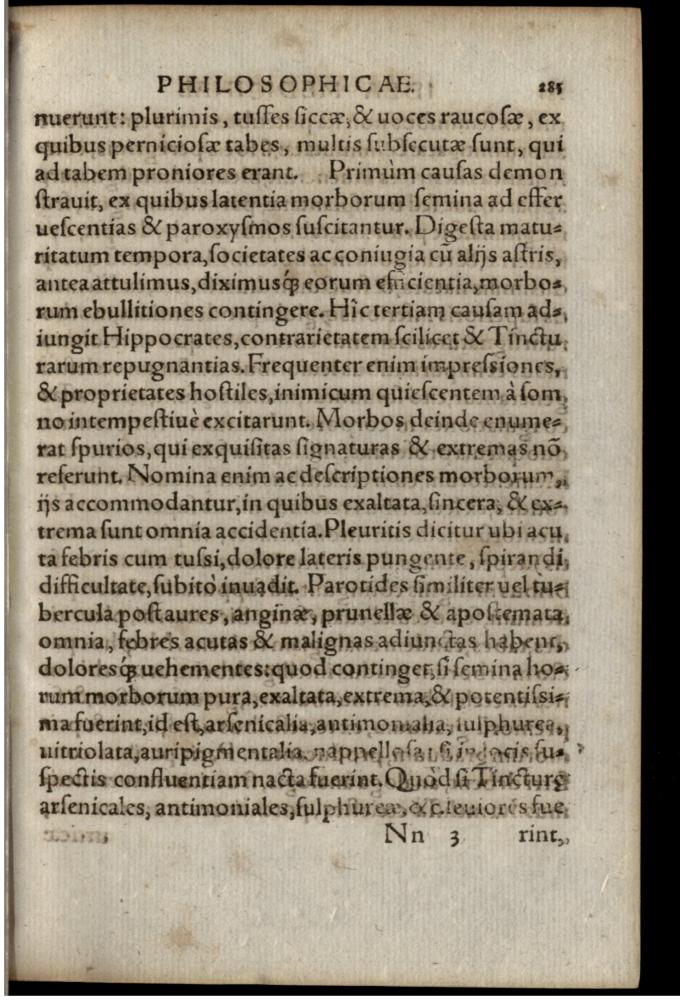 PHILOSOPHICAE. 285
nuerunt: plurimis, tuſſes ſiccæ, & uoces raucoſæ, ex
quibus pernicioſæ tabes, multis ſubſecutæ ſunt, qui
ad tabem proniores erant. Primùm cauſas demon
ſtrauit, ex quibus latentia morborum ſemina ad effer
ueſcentias & paroxyſmos ſuſcitantur. Digeſta matu⸗
ritatum tempora, ſocietates ac coniugia cū alijs aſtris,
antea attulimus, diximusq́; eorum efficientia, morbo⸗
rum ebullitiones contingere. Hîc tertiam cauſam ad⸗
iungit Hippocrates, contrarietatem ſcilicet & Tinctu
rarum repugnantias. Frequenter enim impreſsiones,
& proprietates hoſtiles, inimicum quieſcentem à ſom
no intempeſtiuè excitarunt. Morbos deinde enume⸗
rat ſpurios, qui exquiſitas ſignaturas & extremas nō
referunt. Nomina enim ac deſcriptiones morborum,
ijs accommodantur, in quibus exaltata, ſincera, & ex⸗
trema ſunt omnia accidentia. Pleuritis dicitur ubi acu
ta febris cum tuſsi, dolore lateris pungente, ſpirandi
difficultate, ſubitò inuadit. Parotides ſimiliter uel tu⸗
bercula poſt aures, anginæ, prunellæ & apoſtemata
omnia, febres acutas & malignas adiunctas habent,
doloresq́; uehementes: quod continget, ſi ſemina ho⸗
rum morborum pura, exaltata, extrema, & potentiſsi⸗
ma fuerint, id eſt, arſenicalia, antimonialia, ſulphurea,
uitriolata, auripigmentalia, nappelloſa: ſi in locis ſu⸗
ſpectis confluentiam nacta fuerint. Quòd ſi Tincturę
arſenicales, antimoniales, ſulphureæ, &c. leuiores fue
Nn 3 rint,